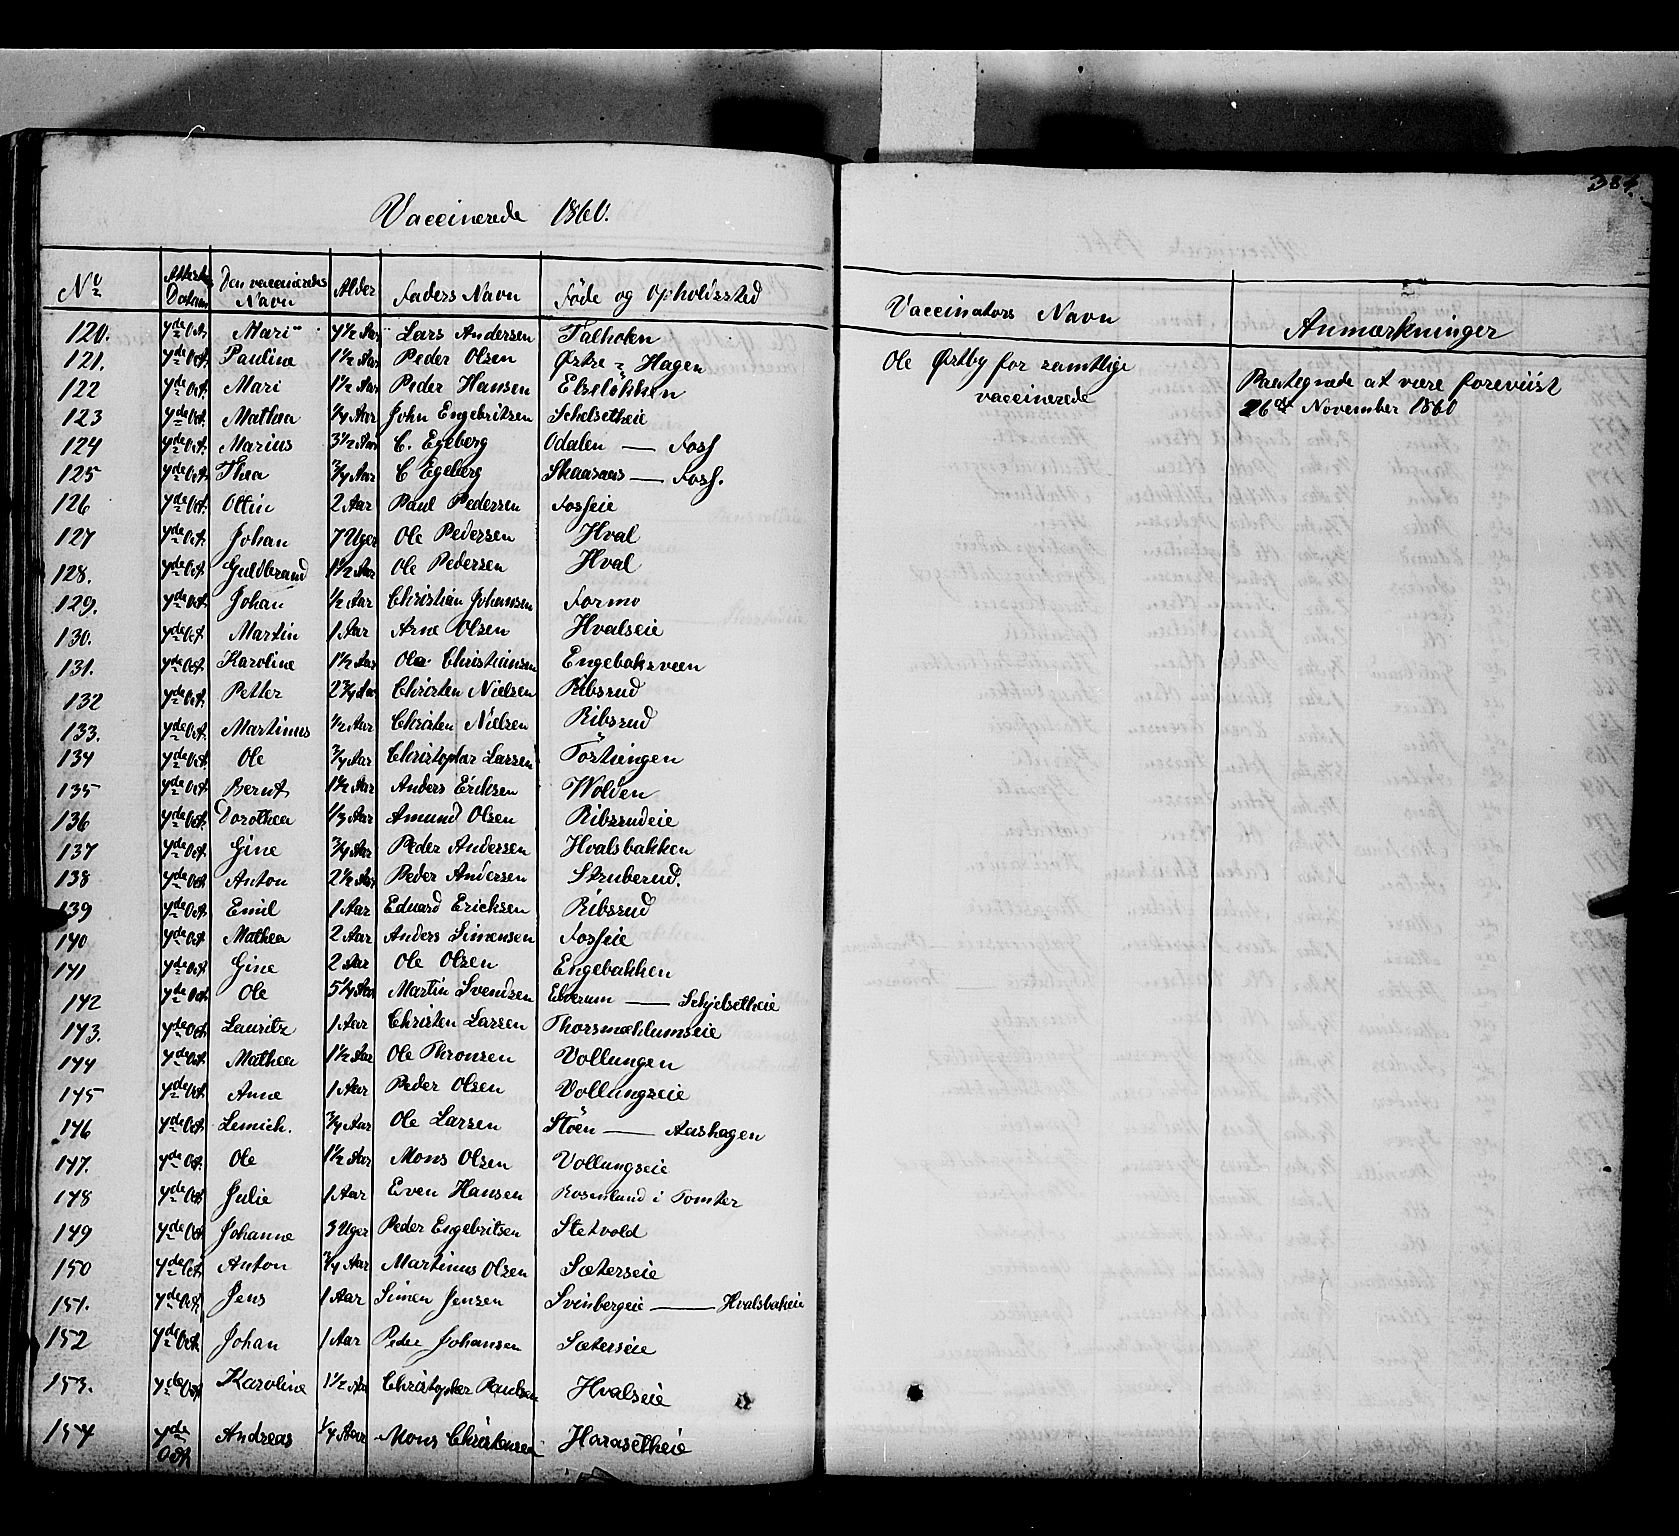 Vaccinerede 1860.
No Attestens Datum Den vaccineredes Navn Alder Faders Navn Föde og Opholdssted
120. 4de Oct. Mari 4 1/2 Aar Lars Andersen Talholen
121. 4de Oct. Pauline 1 1/2 Aar Peder Olsen Østre Hagen
122 4de Oct. Mari 1 1/2 Aar Peder Hansen
123 4de Oct. Mathea 1/4 Aar John Engebritsen Schelsetheie
124 4de Oct. Marius 3 1/2 Aar C. Egeberg Odalen — Foss
125 4de Oct. Thea 3/4 Aar C Egeberg Skaaraas — Foss.
126 4de Oct. Ottin 2 Aar Paul Pedersen Fosseie
127 4de Oct. Johan 7 Uger Ole Pedersen Hval
128. 4de Oct. Guldbrand 1 1/2 Aar Ole Pedersen Hval
129. 4de Oct. Johan 1/2 Aar Christian Johansen Formo
130. 4de Oct. Martin 1 Aar Arne Olsen Hvalseie
131. 4de Oct. Karoline 1 1/2 Aar Ole Christiansen Engebaksveen
132 4de Oct. Petter 2 3/4 Aar Christen Nielsen Ribsrud
133. 4de Oct. Martinus 1/2 Aar Christen Nielsen Ribsrud
134 4de Oct. Ole 3/4 Aar Christopher Larsen
135 4de Oct. Bernt 1 1/2 Aar Anders Eriksen Wolden
136 4de Oct. Dorothea 1/3 Aar Amund Olsen Ribsrudeie
137 4de Oct. Gine 3/4 Aar Peder Andersen Hvalsbakken
138 4de Oct. Anton 2 1/2 Aar Peder Andersen Struberud.
139 4de Oct. Emil 1 Aar Eduard Ericksen Ribsrud
140 4de Oct. Mathea 2 Aar Anders Simensen Fosseie
141 4de Oct. Gine 2 Aar Ole Olsen Engebakken
142 4de Oct. Ole 5 1/4 Aar Martin Svendsen Elverum — Schjelsetheie
143. 4de Oct. Lauritz 1 Aar Christen Larsen Thorsmæhlumseie
144 4de Oct. Mathea 1 1/2 Aar Ole Thronsen Vollungen
145 4de Oct. Anne 1 Aar Peder Olsen Vollungseie
146 4de Oct. Lemich. 3/4 Aar Ole Larsen Stöen — Aashagen
147. 4de Oct. Ole 1 1/2 Aar Mons Olsen Vollungseie
148 4de Oct. Julie 1 Aar Even Hansen Rosenlund i Tomter
149 4de Oct. Johanne 3 Uger Peder Engebritsen Stetvold
150 4de Oct. Anton 3/4 Aar Martinus Olsen Sæterseie
151. 4de Oct. Jens 1 Aar Simen Jensen Svinbergeie — Hvalsbakeie
152 4de Oct. Johan 1 Aar Peder Johansen Sæterseie
153. 4de Oct. Karoline 1 1/2 Aar Christopher Paulsen Hvalseie
154 4de Oct. Andreas 1/4 Aar Mons Christensen Harasetheie
384.
Vaccinators Navn Anmærkninger
Ole Østby for samtlige
vaccinerede
Paategnede at være foreviist
26de November 1860